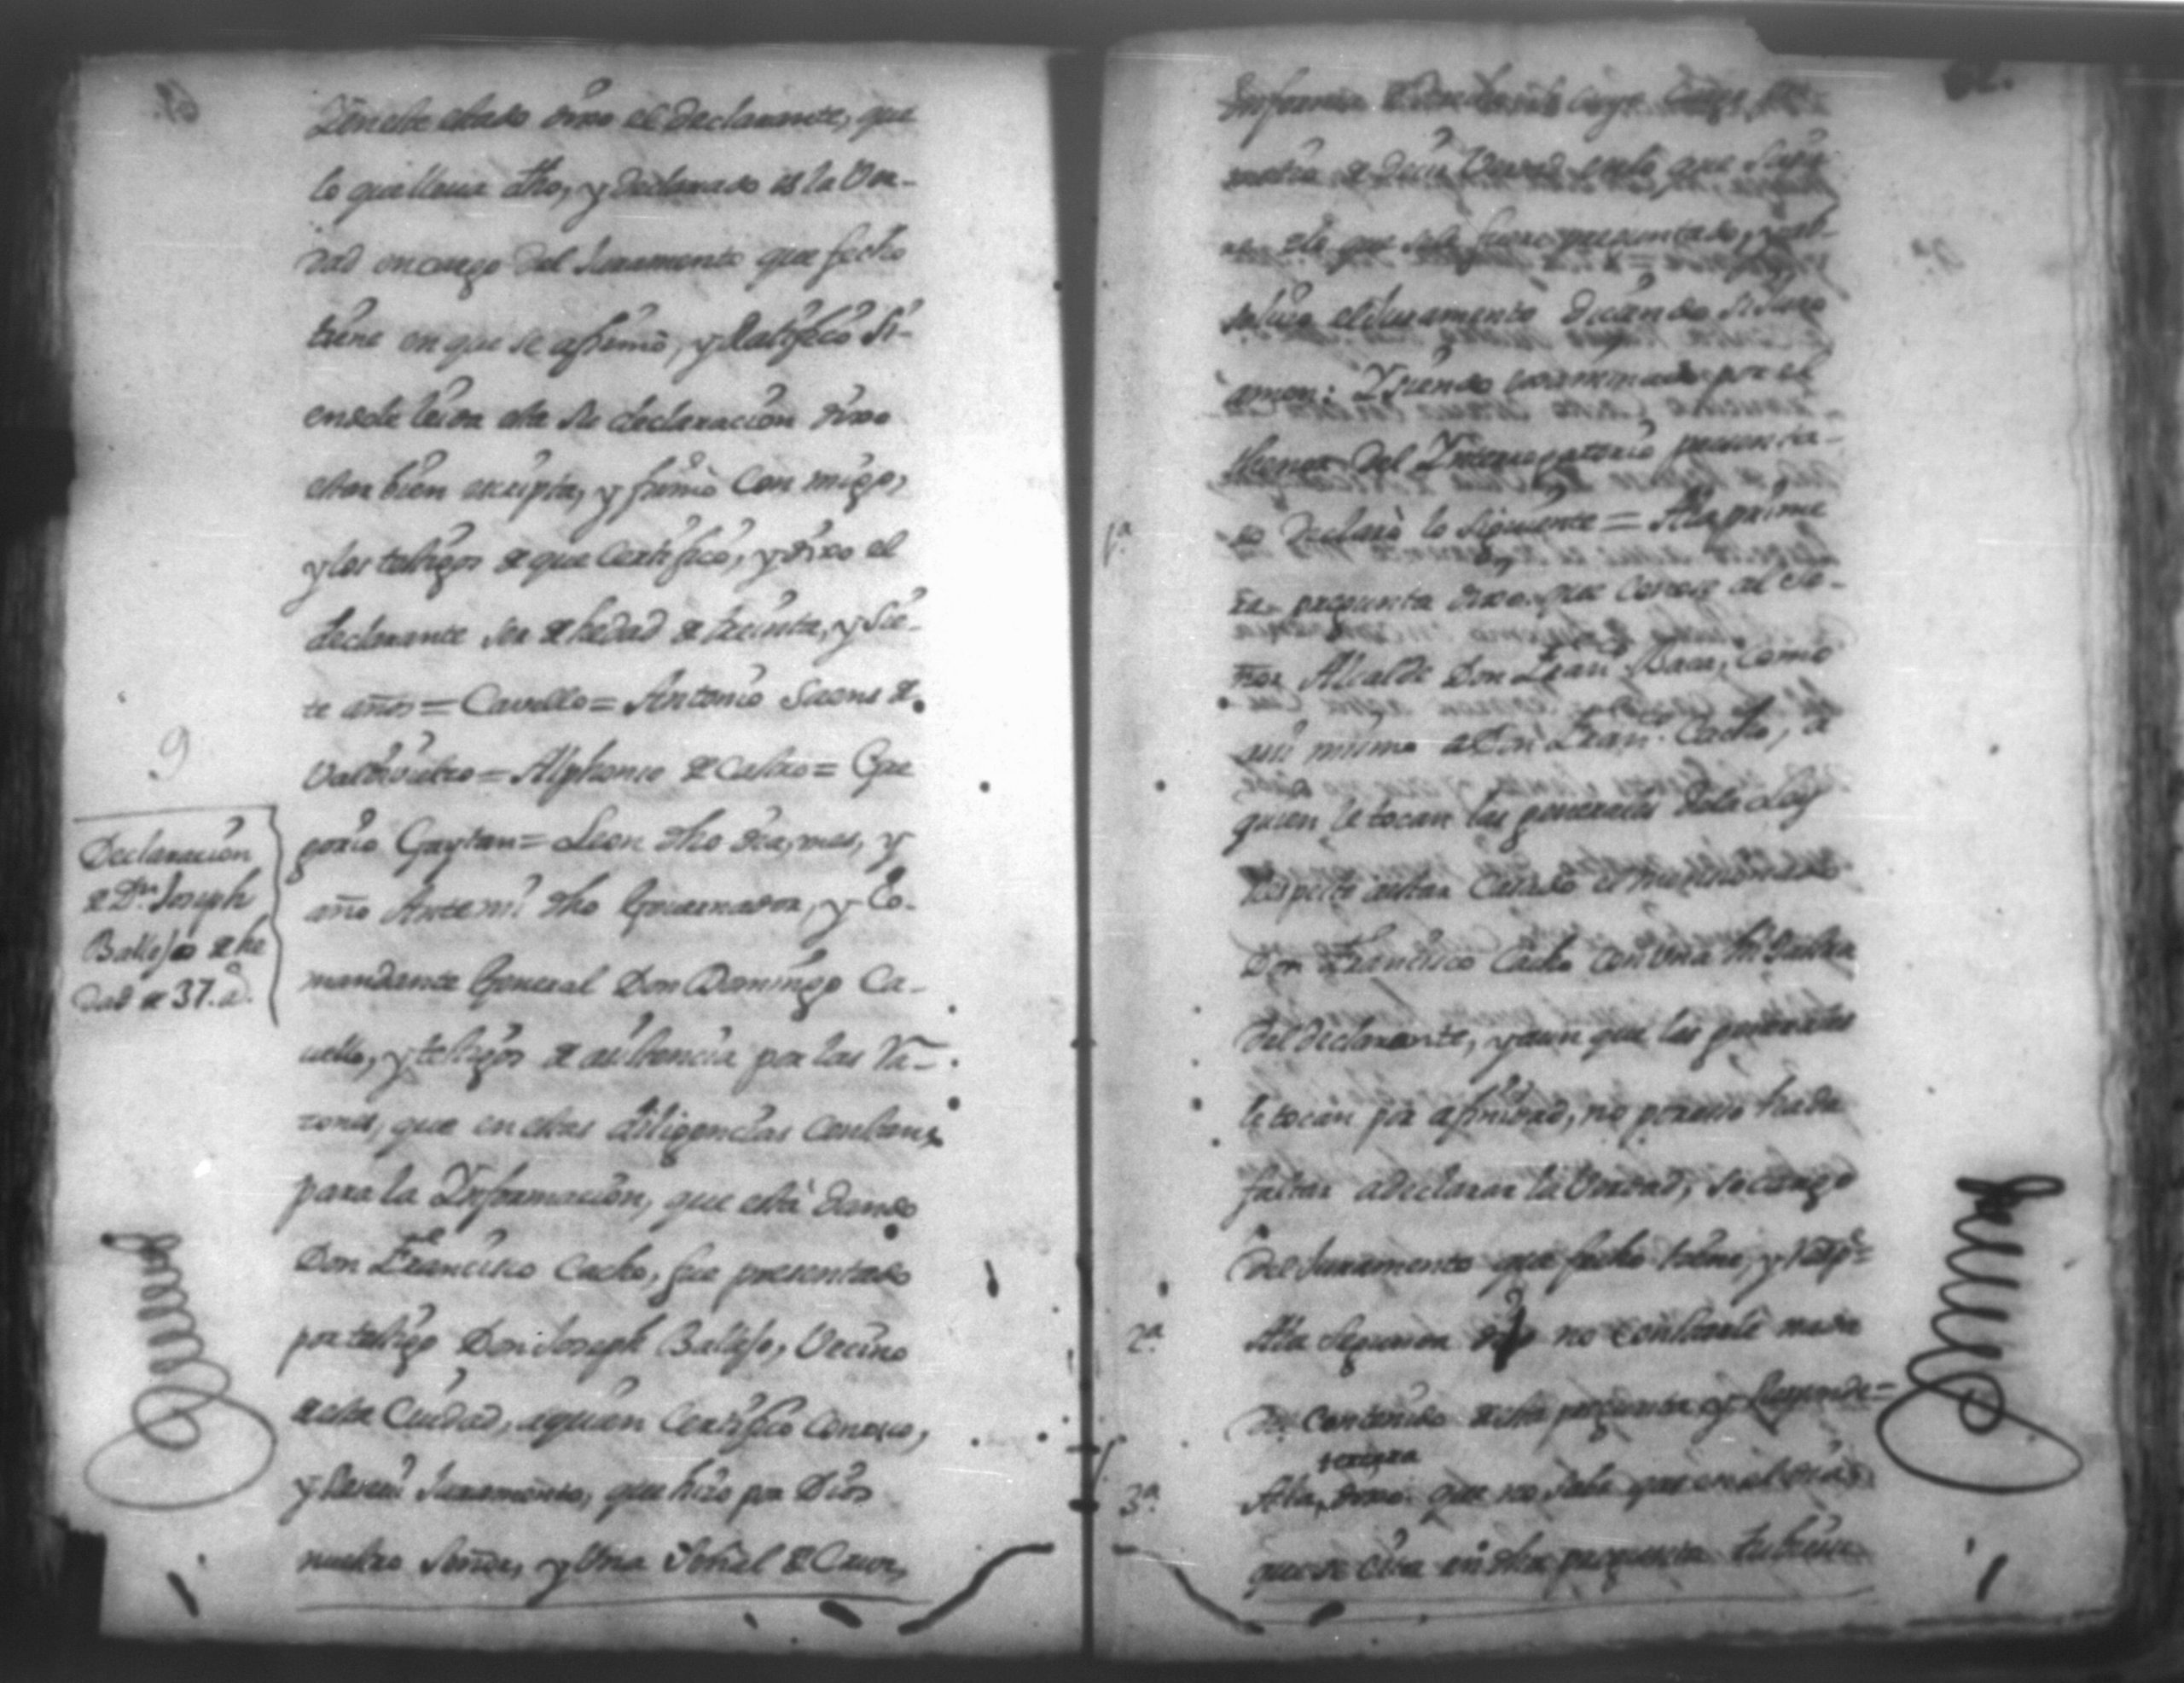 Y en este estado dixo el declarante, que
lo que lleva dho, y declarado es la Ver-
dad en cargo del Juramento que fecho
tiene en que se afirmò, y Ratificò Si-
endole leida esta su declaracion dixo
estar bien escripta, y firmò con migo,
y los testigos de que Certifico, y dixo el
declarante ser de hedad de treinta, y Sie-
te años = Cavello = Antonio Saens de
Valdivielzo = Alphonso de Castro = Gre
gorio Gaytan = Leon dho dia, mes, y
año Antemi dho Governador, y Co-
mandante General Don Domingo Ca-
vello, y testigos de assistencia por las Ra-
zones, que en estas diligencias constan,
para la Ynformacion, que està dando
Don Francisco Cacho, fue presentado
por testigo Don Joseph Ballejo, Vecino
de esta Ciudad, a quien Certifico conosco,
y Recevi Juramento, que hizo por Dios
nuestro Señor, y Una Señal de Cruz,
9
Declaracion
de Dn. Joseph
Ballejo de he
dad de 37. as.
62.
en forma
de decir Verdad en lo que Supie
re de lo que sele fuere preguntado, y ab-
solvio el Juramento diciendo Si Juro
amen: Y siendo examinado por el
thenor del Ynterrogatorio presenta-
1a.
do declarò lo siguiente = Ala prime
ra pregunta dixo: que conoce al Se-
ñor Alcalde Don Fran.co Baca, como
asi mismo a Don Fran.co Cacho, a
quien le tocan las generales dela Ley
Respecto a estar Casado el mencionado
Don Francisco Cacho con Una
del declarante, y aun que las generales
le tocan por afinidad, no por esso hade
faltar a declarar la Verdad, so cargo
del Juramento que fecho tiene, y Resp.e =
2a.
Ala Segunda dixo no constarle nada
del contenido de esta pregunta y Responde =
tercera
3a.
Ala, dixo: que no sabe que en el dia,
que se cita en dha pregunta tubiese